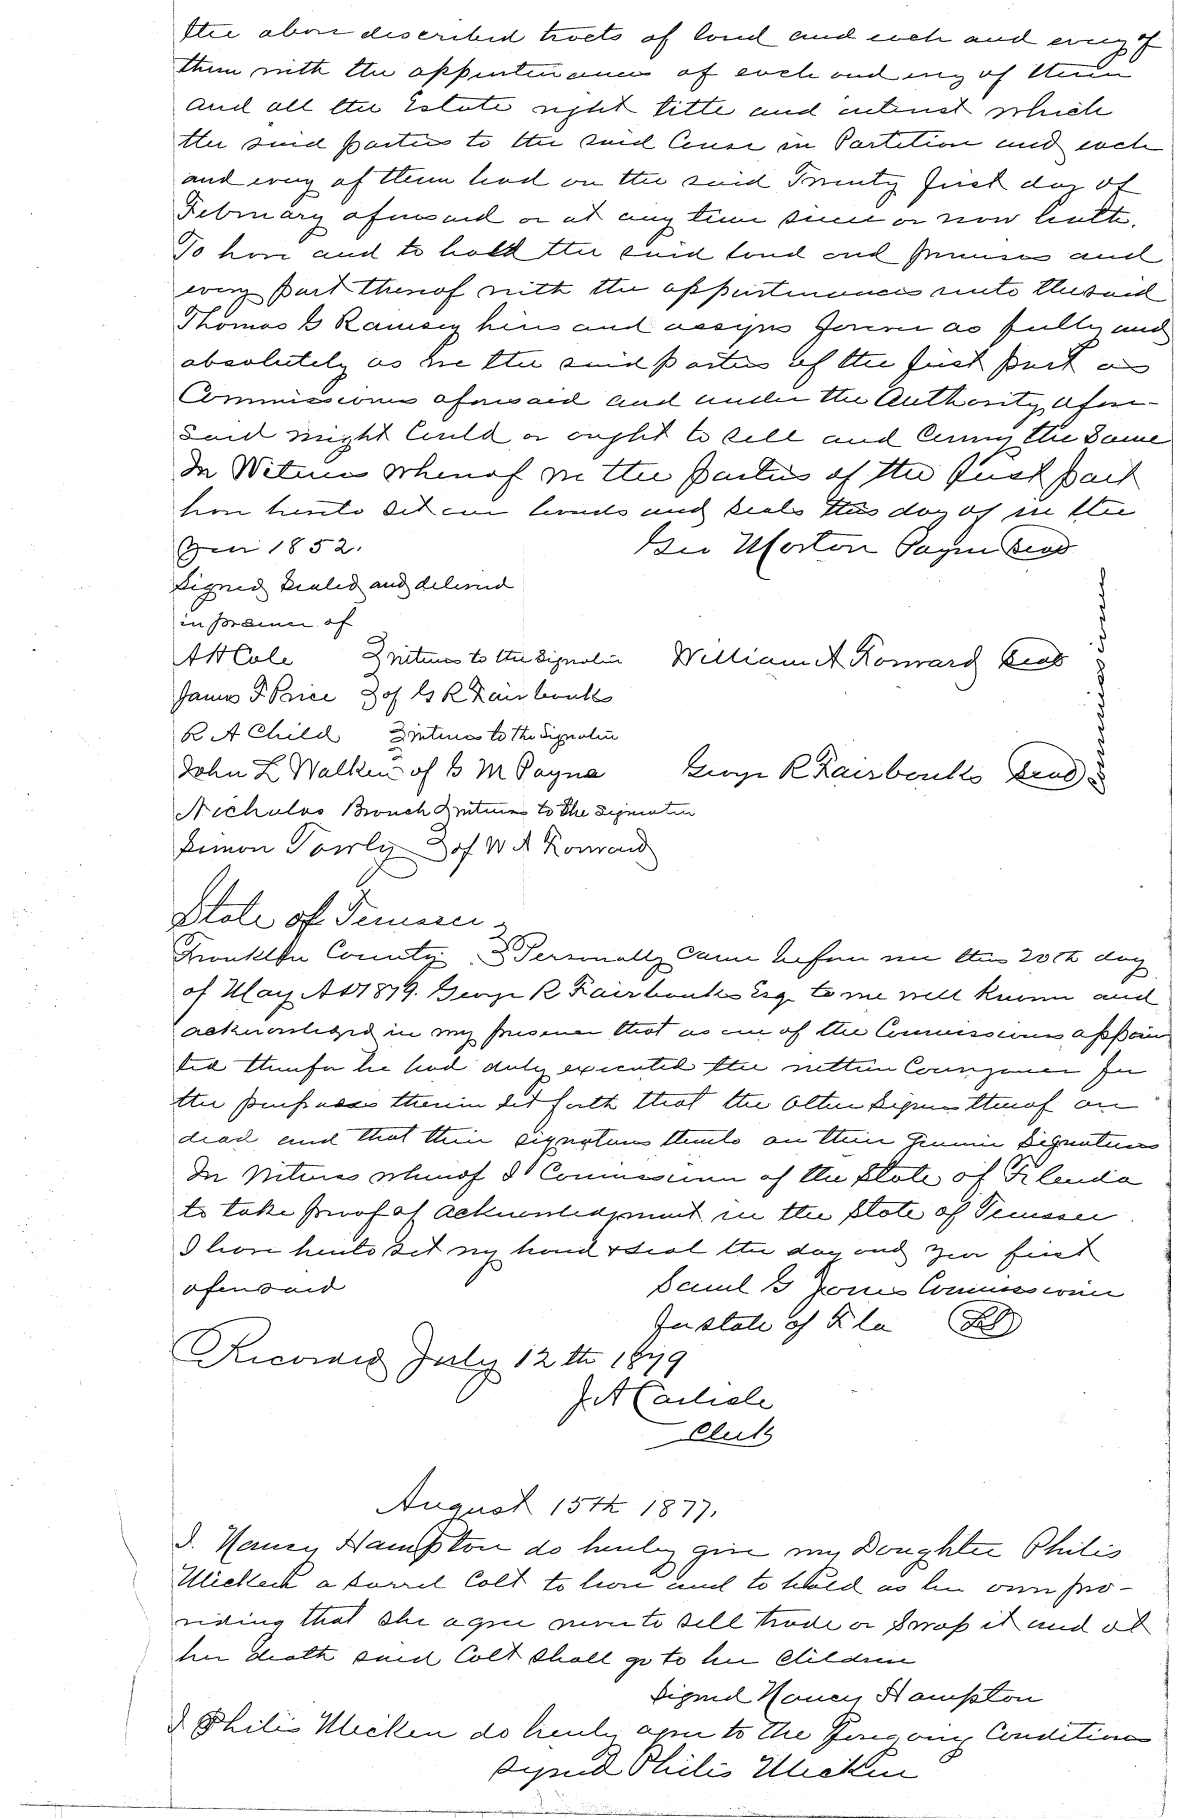 the above described tracts of land and each and every of
them with the appurtenances of each and every of them
and all the Estate right title and interest which
the said parties to the said Cause in Partition and each
and every of them had on the said Twenty first day of
February aforesaid or at any time since or now hath.
To have and to hold the said land and premises and
every part thereof with the appurtenances unto the said
Thomas G Ramsey heirs and assigns forever as fully and
absolutely as we the said parties of the first part as
Commissioners aforesaid and under the Authority afore-
said might Could or ought to sell and Convey the Same
In Witness whereof we the parties of the first part
have hereto set our hands and seals this day of in the
year 1852. Geo Morton Payne Seal
Signed Sealed and delivered
in presence of
A H Cole witness to the signature William A Forward Seal
James F Price of G R Fairbanks
R A Child witness to the Signature
John L Walker of G M Payne George R Fairbanks Seal
Commissioners
Nicholas Brouch witness to the signature
Simon Towly of W A Forward
State of Tennessee
Franklin County Personally came before me this 20th day
of May AD 1879. George R Fairbanks Esq. to me well known and
acknowledged in my presence that as one of the Commissioners appoin
ted therefor he had duly executed the within Conveyance for
the purposes therein set forth that the other signers thereof are
dead and that their signatures thereto are their genuine signatures
In Witness whereof I Commissioner of the State of Florida
to take proof of acknowledgment in the State of Tennessee.
I have hereto set my hand & seal the day and year first
aforesaid Saml G Jones Commissioner
for state of Fla LS
Recorded July 12th 1879
J. A Carlisle
Clerk
August 15th 1877.
I. Nancy Hampton do hereby give my Daughter Philis
Micken a sorrel Colt to have and to hold as her own pro-
viding that she agree never to sell trade or swap it and at
her death said Colt shall go to her children
Signed Nancy Hampton
I Philis Micken do hereby agree to the foregoing Conditions
signed Philis Micken